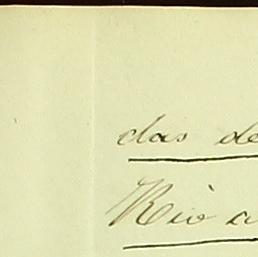 das de
Rio a